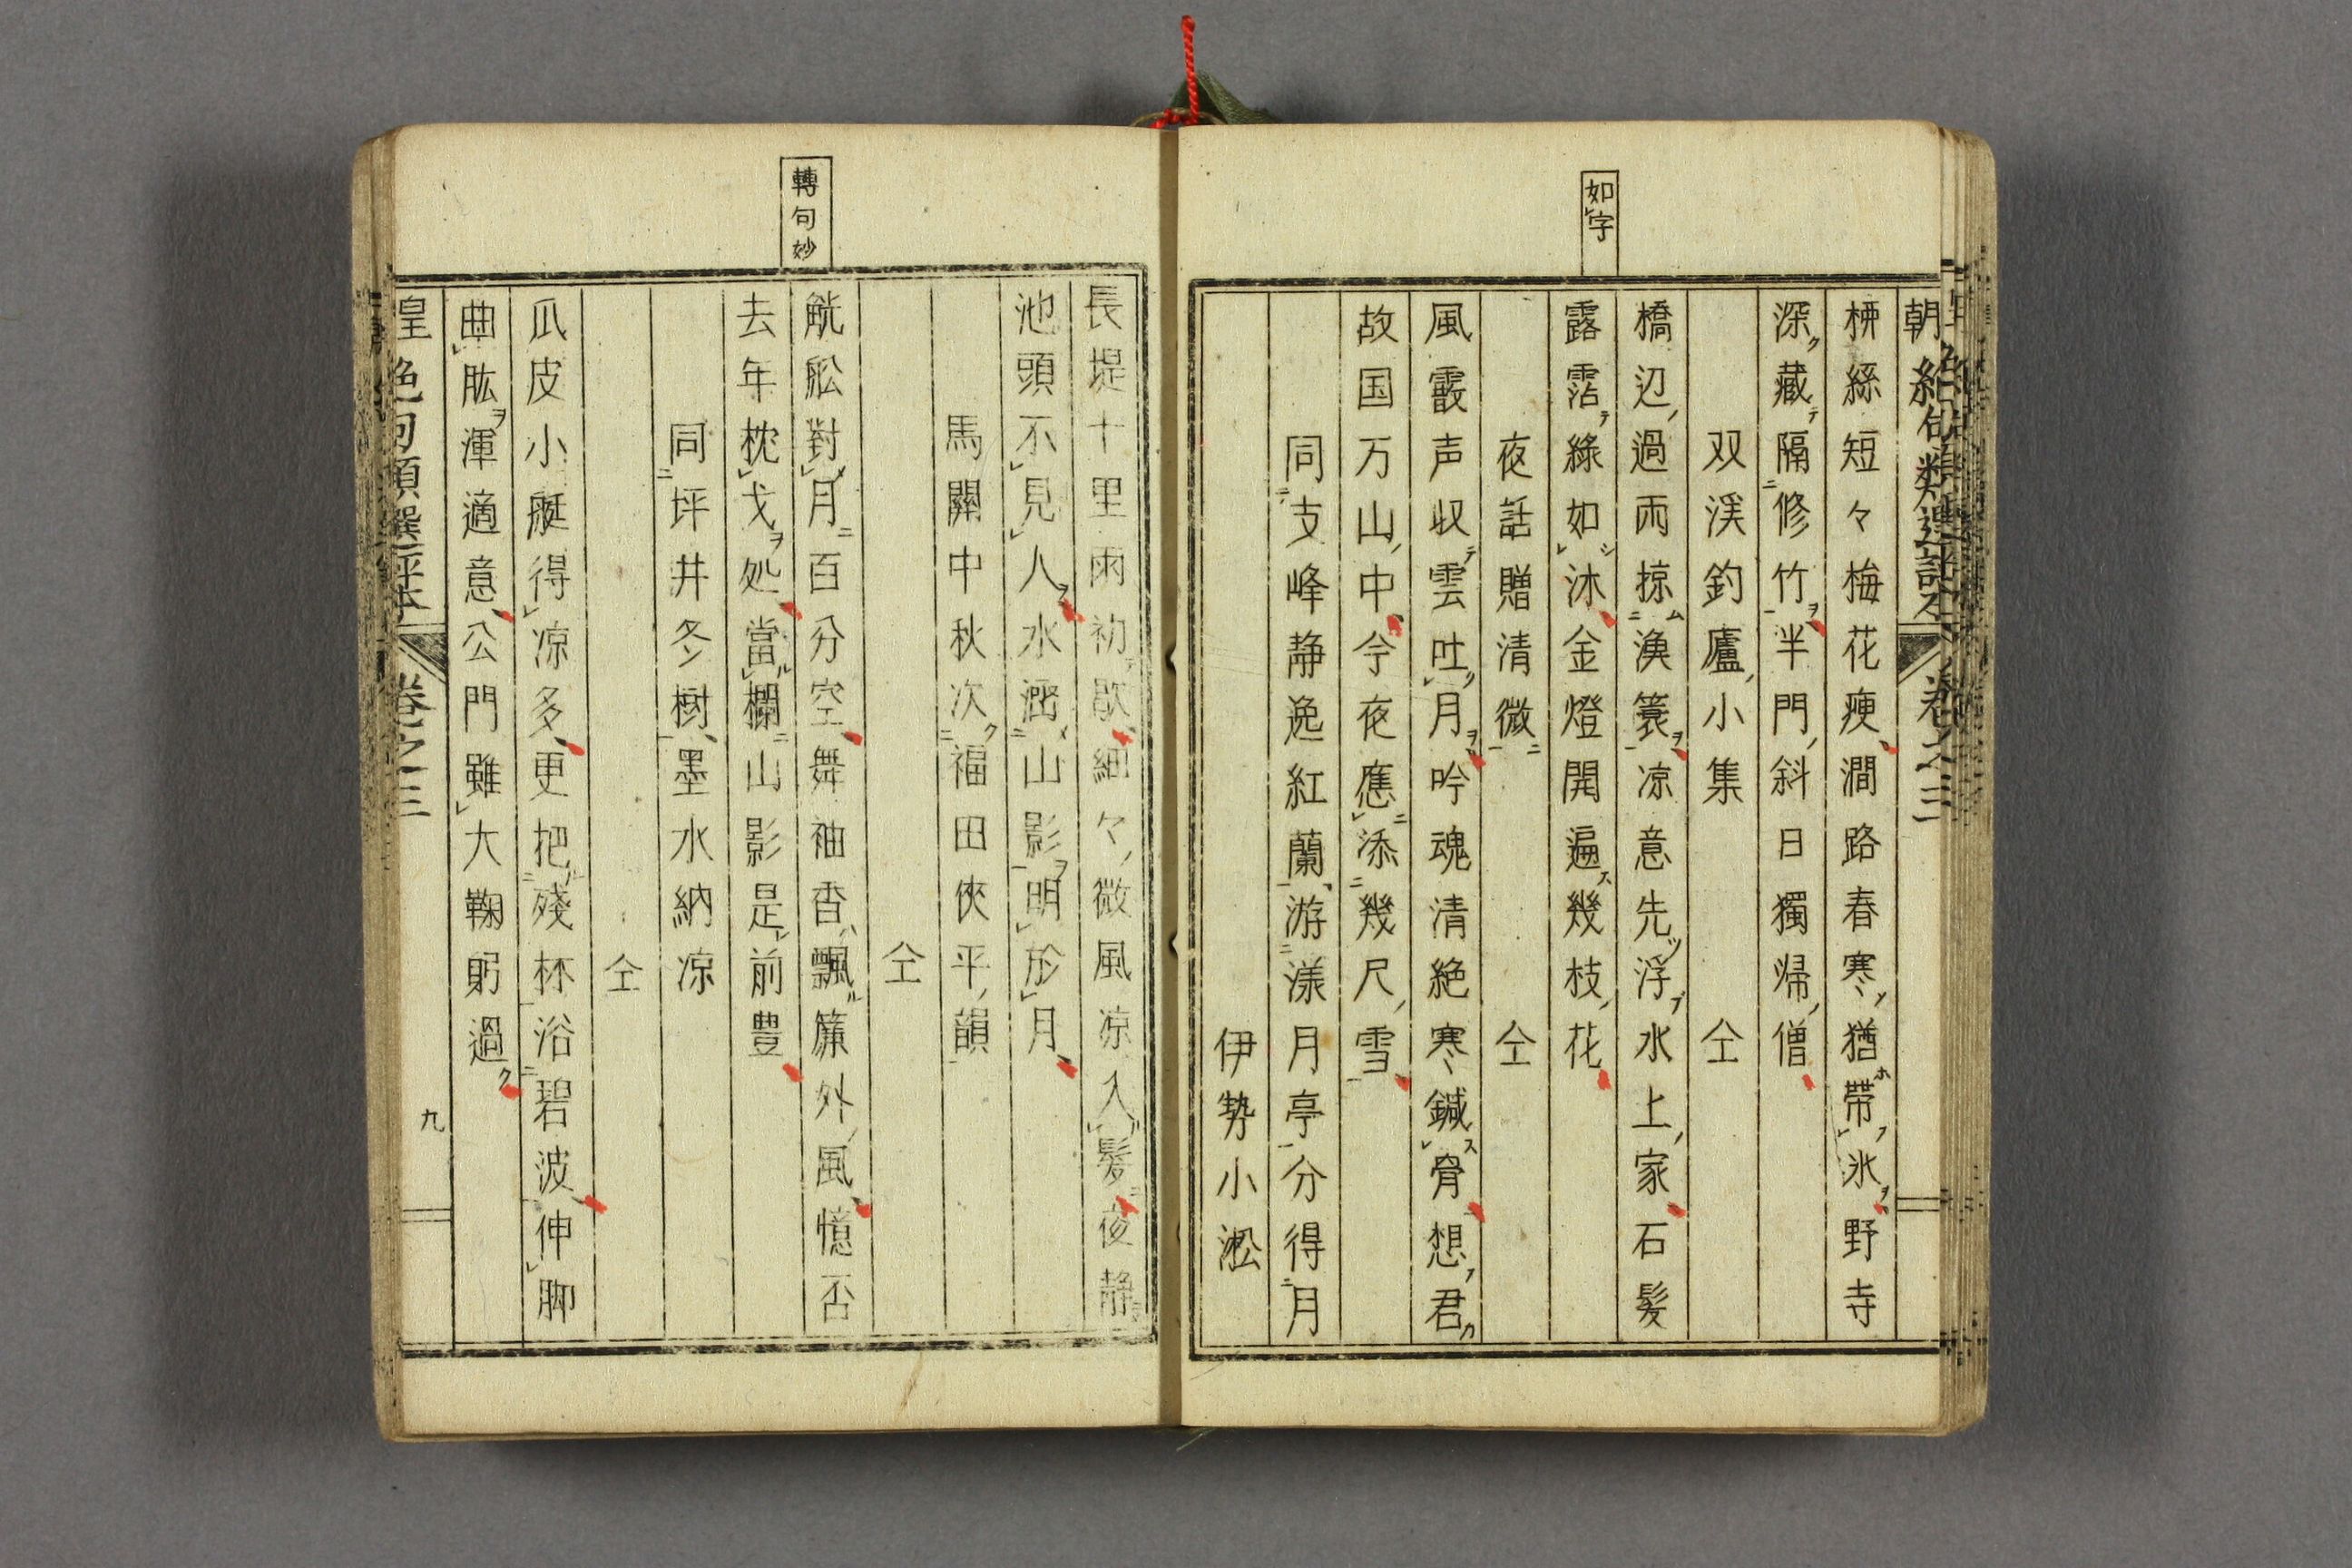 如字
朝絶句類選評本 卷之三
柳絲短々梅花痩澗路春寒猶帶氷野寺
深藏隔修竹半門斜日獨帰僧
双渓釣廬小集 仝
橋辺過雨掠漁簑凉意先浮水上家石髪
露霑綠如沐金燈開遍幾枝花
夜話贈清微 仝
風霰声収雲吐月吟魂清絶寒鍼骨想君
故国万山中今夜應添幾尺雪
同支峰静逸紅蘭游漾月亭分得月
伊勢小淞
轉句妙
長堤十里雨初歇細々微風凉入髪夜静
池頭不見人水涵山影明於月
馬關中秋次福田俠平韻
仝
觥舩對月百分空舞袖香飄簾外風憶否
去年枕戈処當欄山影是前豊
同坪井冬樹墨水納凉
仝
瓜皮小艇得凉多更把殘杯浴碧波伸脚
曲肱渾適意公門雖大鞠躬過
皇 絶句類選評本 卷之三
九